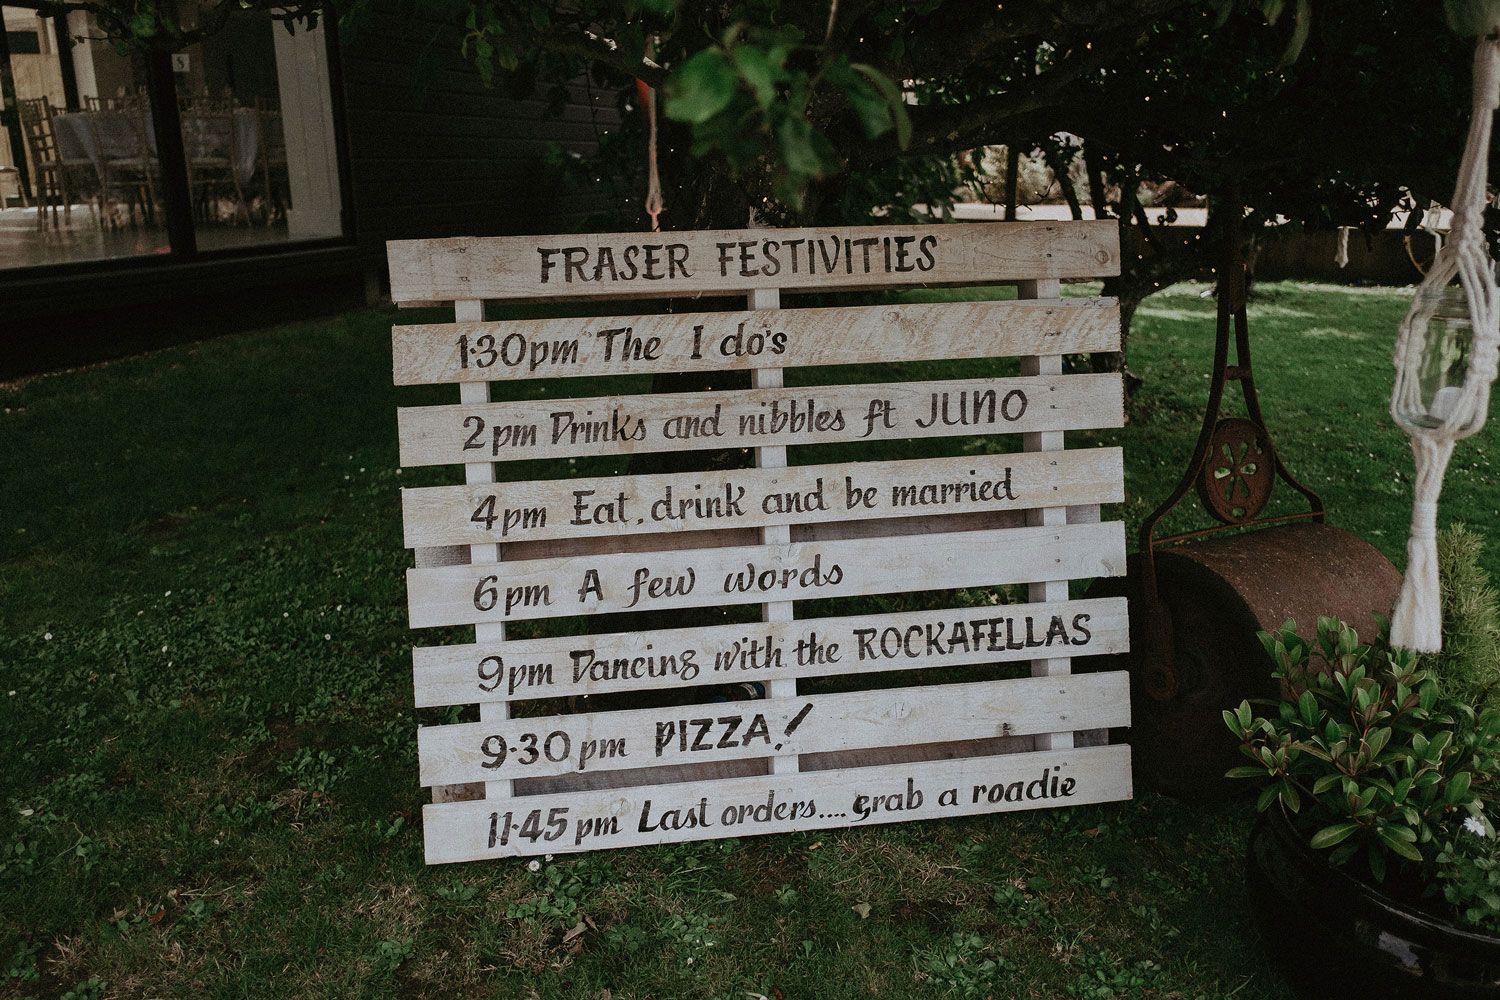 FRASER FESTIVITIES
1·30pm The I do's
2pm Drinks and nibbles ft JUNO
4pm Eat, drink and be married
6pm A few words
9pm Dancing with the ROCKAFELLAS
9·30pm PIZZA!
11·45pm Last orders.... grab a roadie